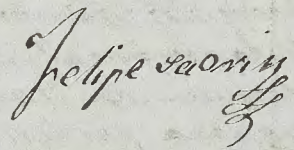 Felipe Saovin